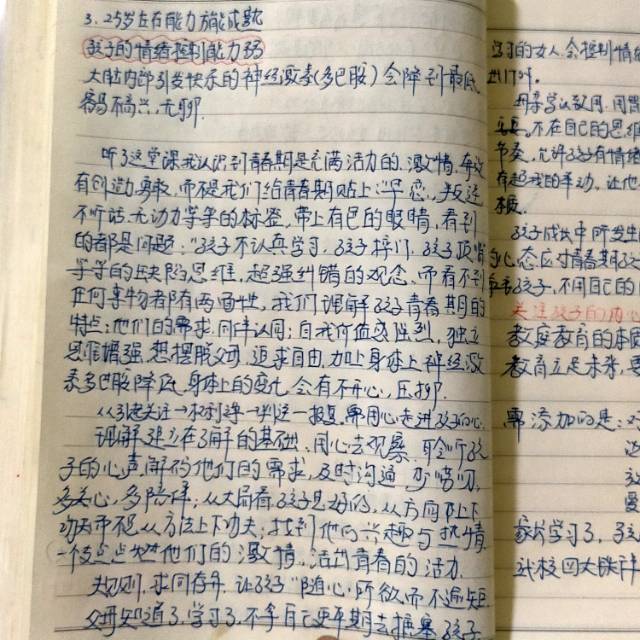 3. 25岁左右能力方能成熟
孩子的情绪控制能力弱
大脑内部引发快乐的神经激素(多巴胺)会降到最低
容易不高兴.无聊
听了这堂课我认识到青春期是充满活力的、激情、有效
有创造力、勇敢.而不是我们给青春期贴上"早恋、叛逆
不听话、无动力等等的标签,带上有色的眼睛,看到
的都是问题:"孩子不认真学习,孩子摔门,孩子顶嘴
等等的缺陷思维,超强纠错的观念,而看不到
任何事物都有两面性,我们理解孩子青春期的
特点:他们的需求,同伴认同;自我价值感强烈,独立
思维增强.想摆脱父母.追求自由.加上身体上神经激
素多巴胺降低,身体上的变化,会有不开心,压抑
从引起关注→权利之争→报复.需用心走进孩子的心.
理解建立在了解的基础、用心去观察、聆听孩
子的心声,解码他们的需求,及时沟通、少唠叨,
多关心,多陪伴;从大局看孩子是好的,从方向上下
功夫而不是从方法上下功夫;找到他们兴趣与热情
一个支点点燃他们的激情.活出青春的活力.
大规则.求同存异.让孩子"随心所欲而不逾矩
父母知道了.学习了.不拿自己更年期去撞孩子
学习的女人.会控制情
母亲学以致用.用
不在自己的思
节奏,允许孩子有情绪
孩子成长中所发生
心态应对青春期孩
孩子,不用自己的
关注孩子的内心
教庭教育的本质
教育立足未来,
需添加的是:
家长学习了,